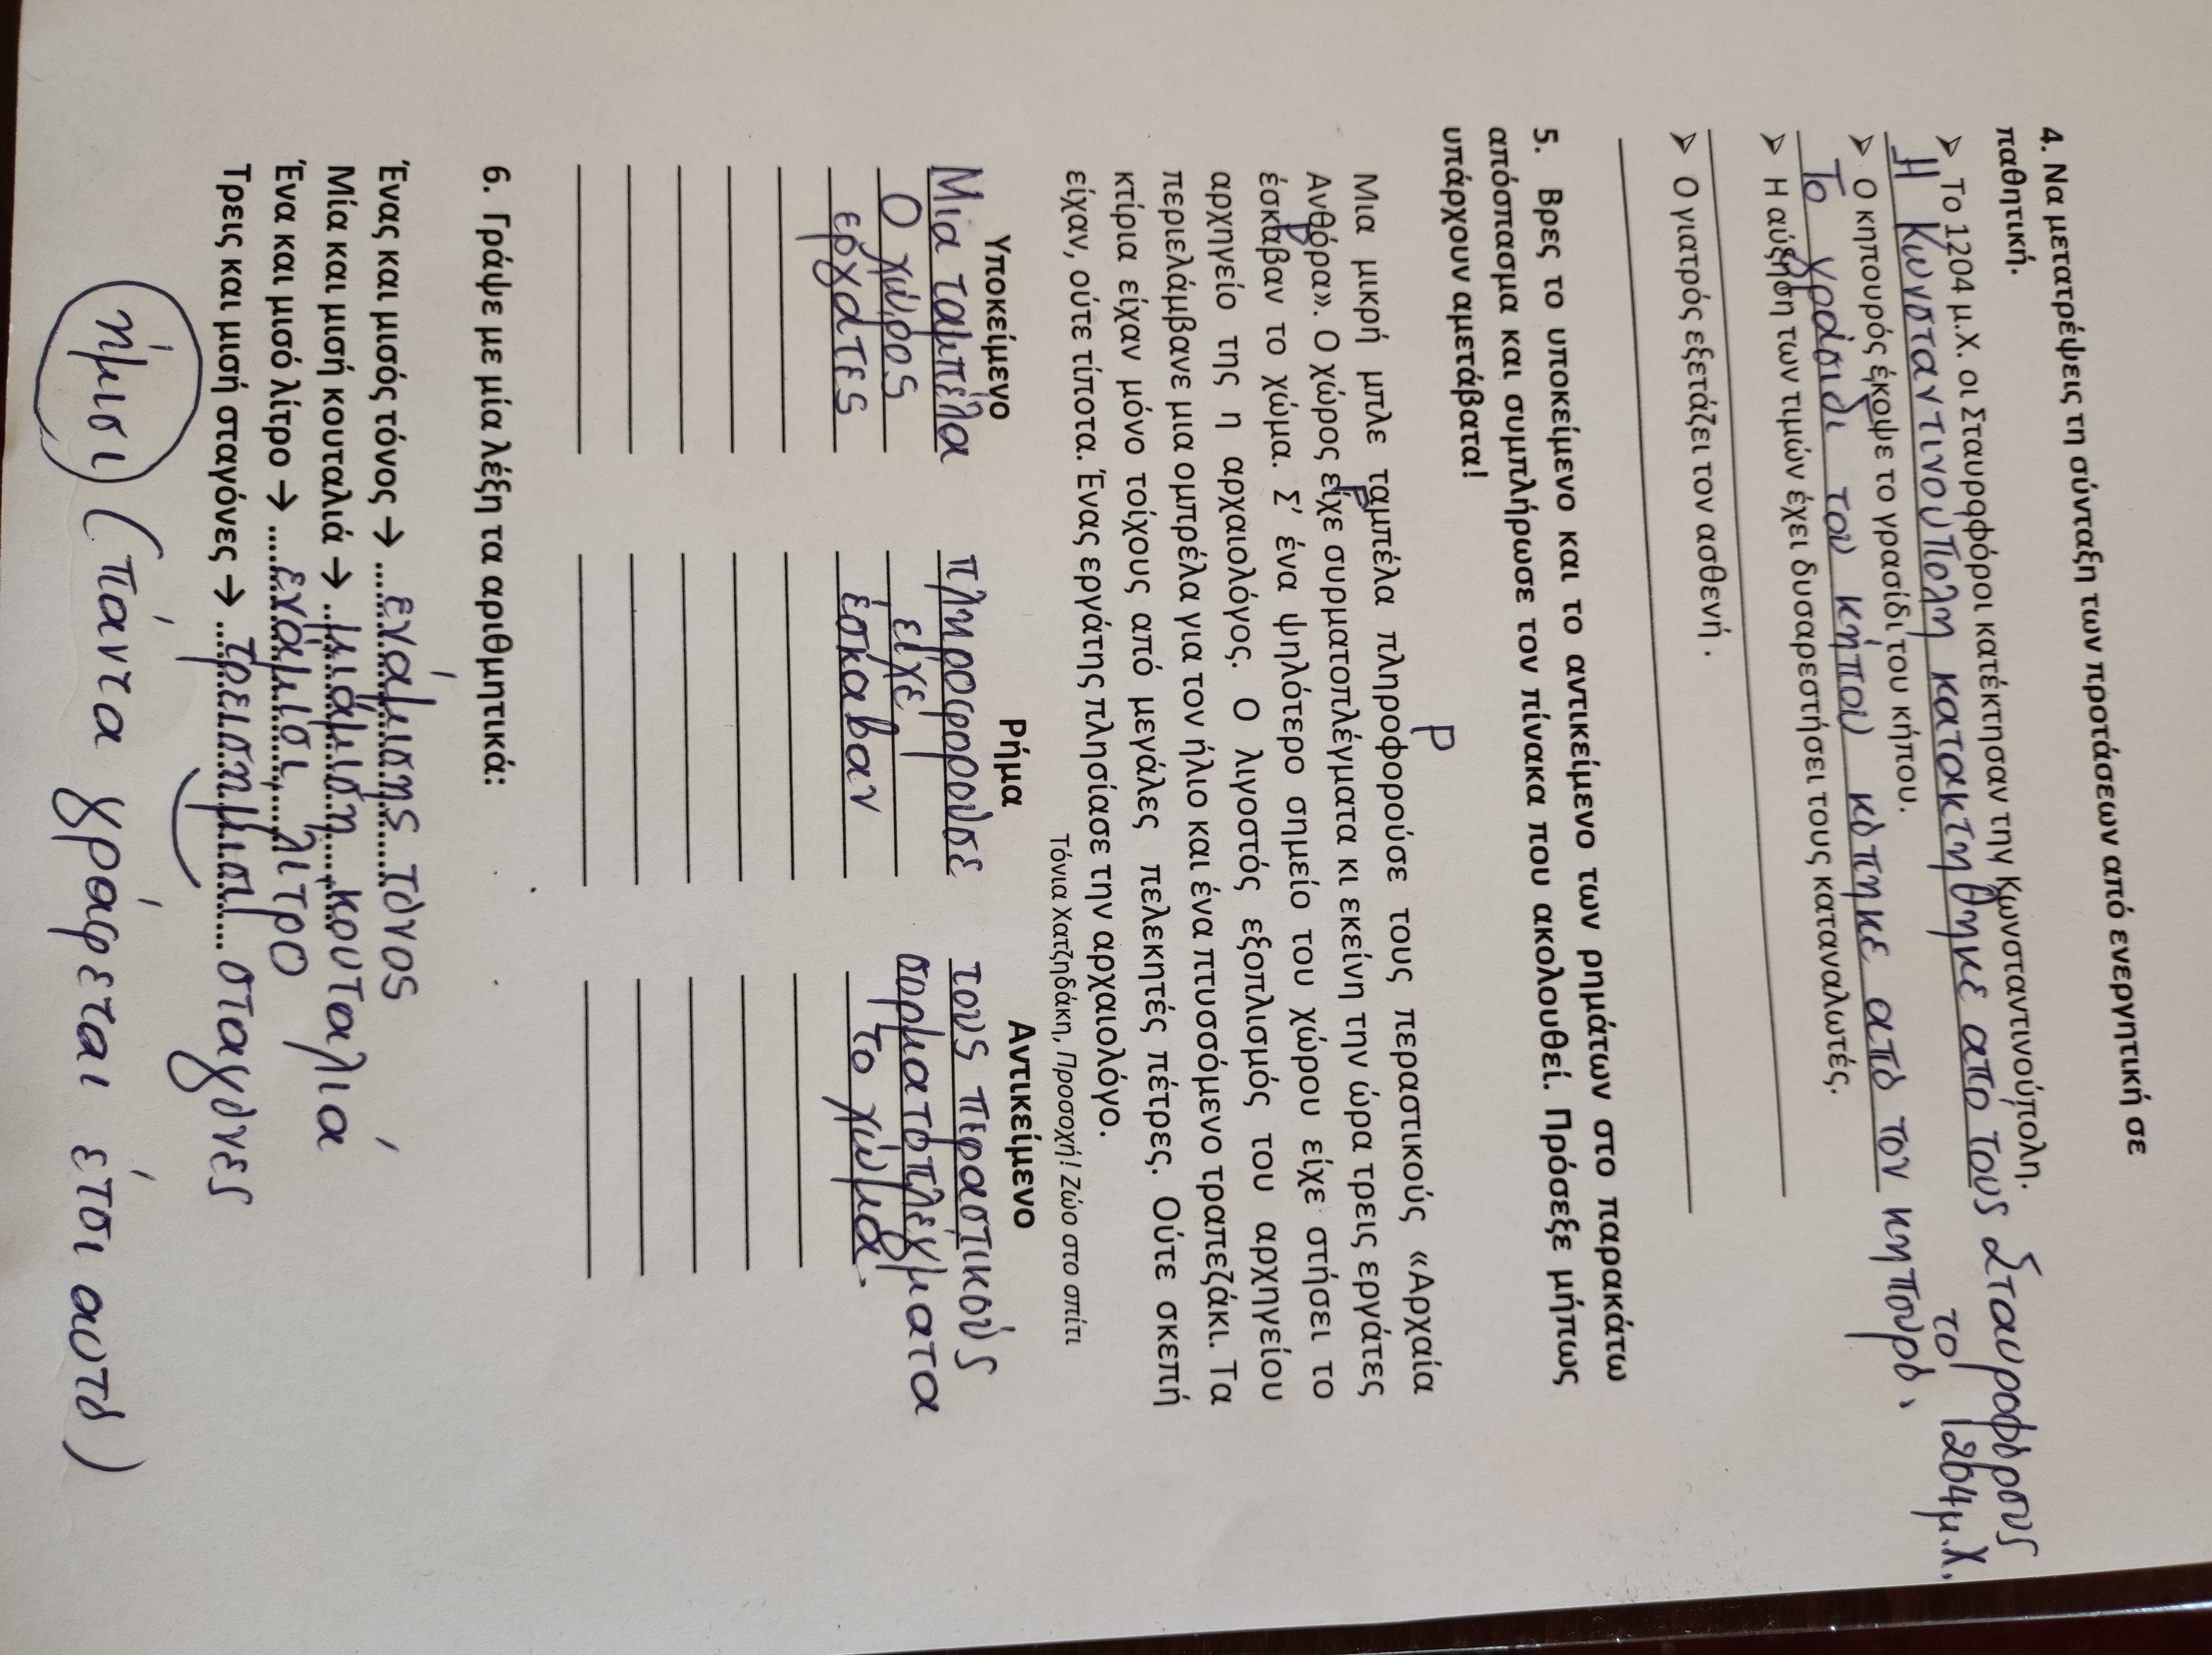 4. Να μετατρέψεις τη σύνταξη των προτάσεων από ενεργητική σε
παθητική.
➢ Το 1204 μ.Χ. οι Σταυροφόροι κατέκτησαν την Κωνσταντινούπολη.
Η Κωνσταντινούπολη κατακτήθηκε από τους Σταυροφόρους
το 1204 μ.Χ.
➢ Ο κηπουρός έκοψε το γρασίδι του κήπου.
Το γρασίδι του κήπου κόπηκε από τον κηπουρό.
➢ Η αύξηση των τιμών έχει δυσαρεστήσει τους καταναλωτές.
➢ Ο γιατρός εξετάζει τον ασθενή .
5. Βρες το υποκείμενο και το αντικείμενο των ρημάτων στο παρακάτω
απόσπασμα και συμπλήρωσε τον πίνακα που ακολουθεί. Πρόσεξε μήπως
υπάρχουν αμετάβατα!
Ρ
Μια μικρή μπλε ταμπέλα πληροφορούσε τους περαστικούς «Αρχαία
Ρ
Ανθόρα». Ο χώρος είχε συρματοπλέγματα κι εκείνη την ώρα τρεις εργάτες
Ρ
έσκαβαν το χώμα. Σ’ ένα ψηλότερο σημείο του χώρου είχε στήσει το
αρχηγείο της η αρχαιολόγος. Ο λιγοστός εξοπλισμός του αρχηγείου
περιελάμβανε μια ομπρέλα για τον ήλιο και ένα πτυσσόμενο τραπεζάκι. Τα
κτίρια είχαν μόνο τοίχους από μεγάλες πελεκητές πέτρες. Ούτε σκεπή
είχαν, ούτε τίποτα. Ένας εργάτης πλησίασε την αρχαιολόγο.
Τόνια Χατζηδάκη, Προσοχή! Ζώο στο σπίτι
Υποκείμενο Ρήμα Αντικείμενο
Μια ταμπέλα πληροφορούσε τους περαστικούς
Ο χώρος είχε συρματοπλέγματα
εργάτες έσκαβαν το χώμα.
6. Γράψε με μία λέξη τα αριθμητικά:
Ένας και μισός τόνος → ενάμισης τόνος
Μία και μισή κουταλιά → μιάμιση κουταλιά
Ένα και μισό λίτρο → ενάμισι λίτρο
Τρεις και μισή σταγόνες → τρεισήμισι σταγόνες
ήμισι (πάντα γράφεται έτσι αυτό)